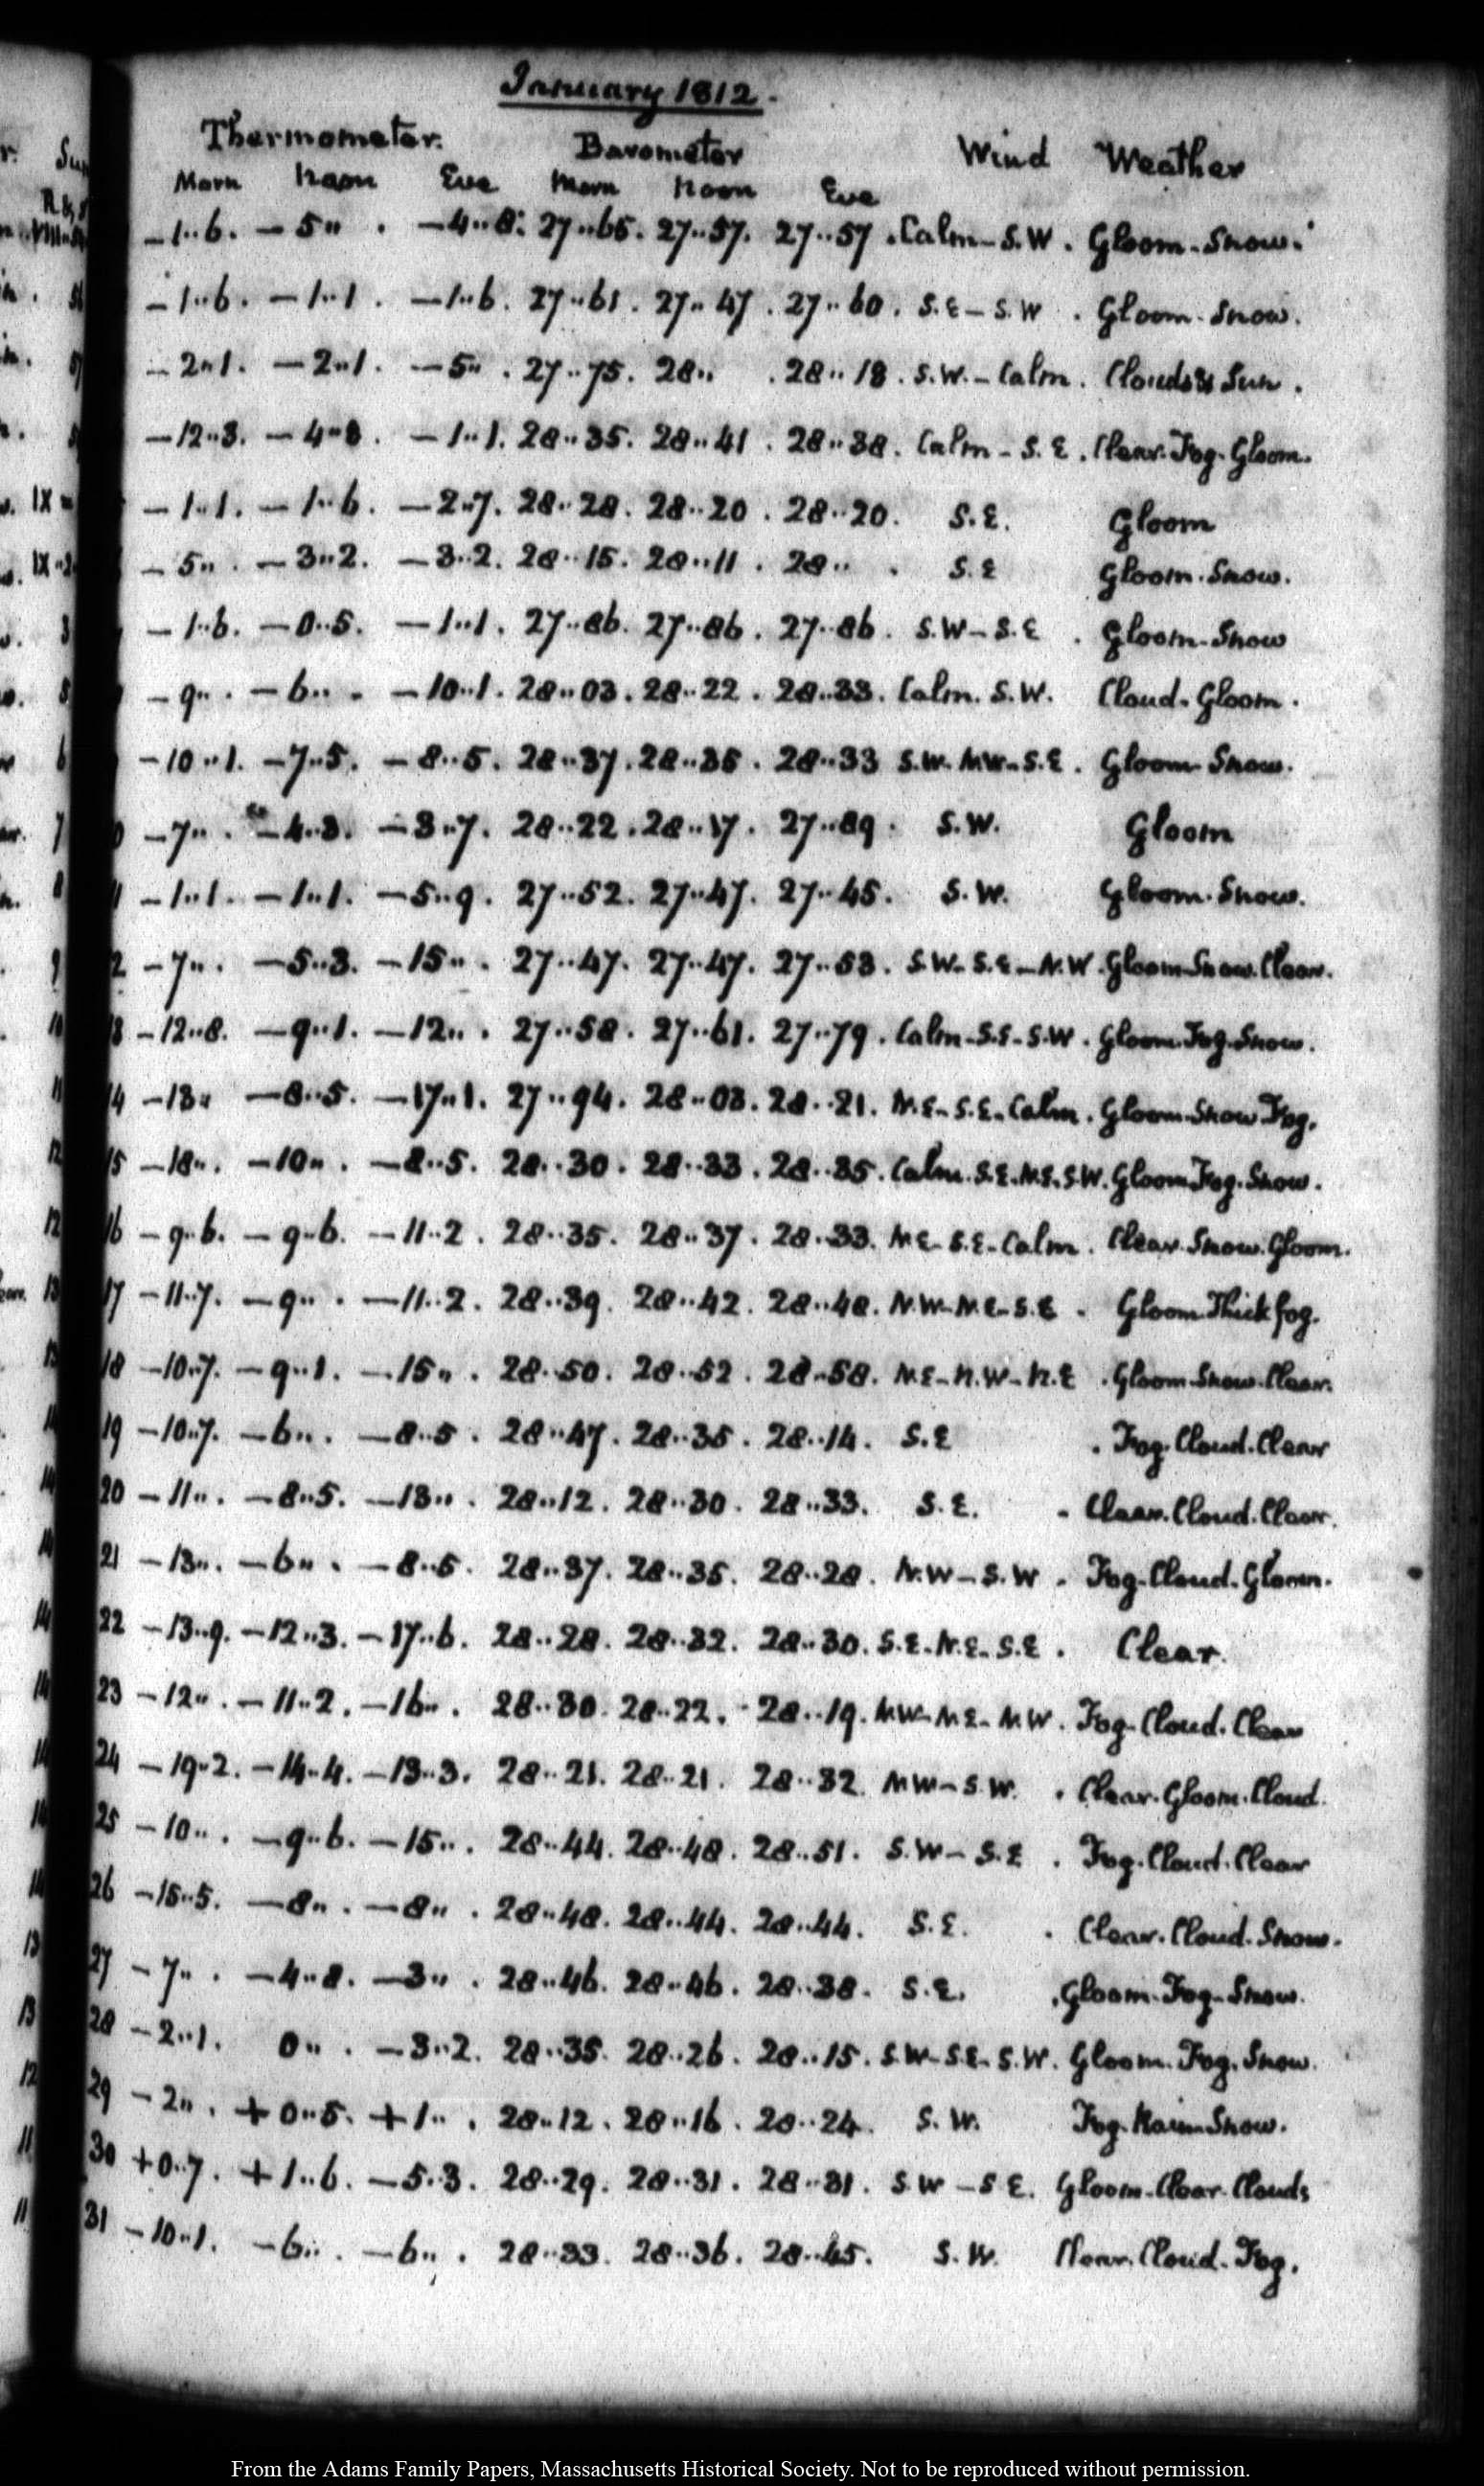 January 1812.
Thermometer. Barometer Wind Weather
Morn Noon Eve Morn Noon Eve
-1..6. -5.. . -4..8. 27..65. 27..57. 27..57. Calm-S.W. Gloom-Snow.
-1..6. -1..1. -1..6. 27..61. 27..47. 27..60. S.E-S.W. Gloom-Snow.
-2..1. -2..1. -5.. . 27..75. 28.. . 28..18. S.W.-Calm. Clouds & Sun.
-12..3. -4..8. -1..1. 28..35. 28..41. 28..38. Calm-S.E. Clear-Fog-Gloom.
-1..1. -1..6. -2..7. 28..28. 28..20. 28..20. S.E. Gloom
-5.. . -3..2. -3..2. 28..15. 28..11. 28.. . S.E Gloom-Snow.
-1..6. -0..5. -1..1. 27..86. 27..86. 27..86. S.W-S.E. Gloom-Snow
-9.. . -6.. . -10..1. 28..03. 28..22. 28..33. Calm. S.W. Cloud-Gloom.
-10..1. -7..5. -8..5. 28..37. 28..35. 28..33 S.W. N.W-S.E. Gloom-Snow.
-7.. . -4..3. -3..7. 28..22. 28..17. 27..89. S.W. Gloom
11 -1..1. -1..1. -5..9. 27..52. 27..47. 27..45. S.W. Gloom-Snow.
2 -7.. . -5..3. -15.. . 27..47. 27..47. 27..53. S.W-S.E-N.W. Gloom-Snow.Clear.
13 -12..8. -9..1. -12.. . 27..58. 27..61. 27..79. Calm-S.E-S.W. Gloom.Fog.Snow.
14 -13.. -8..5. -17..1. 27..94. 28..03. 28..21. N.E-S.E-Calm. Gloom-Snow Fog.
15 -18.. . -10.. . -8..5. 28..30. 28..33. 28..35. Calm.S.E.N.E.S.W. Gloom.Fog.Snow.
16 -9..6. -9..6. -11..2. 28..35. 28..37. 28..33. N.E-S.E-Calm. Clear.Snow.Gloom.
17 -11..7. -9.. . -11..2. 28..39. 28..42. 28..48. N.W-N.E-S.E. Gloom.Thick fog.
18 -10..7. -9..1. -15.. . 28..50. 28..52. 28..58. N.E-N.W-N.E. Gloom.Snow.Clear.
19 -10..7. -6.. . -8..5. 28..47. 28..35. 28..14. S.E. Fog.Cloud.Clear
20 -11.. . -8..5. -13.. . 28..12. 28..30. 28..33. S.E. Clear.Cloud.Clear.
21 -13.. . -6.. . -8..5. 28..37. 28..35. 28..28. N.W-S.W. Fog-Cloud.Gloom.
22 -13..9. -12..3. -17..6. 28..28. 28..32. 28..30. S.E.-N.E.-S.E. Clear.
23 -12.. . -11..2. -16.. . 28..30. 28..22. 28..19. N.W-N.E-N.W. Fog-Cloud.Clear
24 -19..2. -14..4. -13..3. 28..21. 28..21. 28..32. N.W-S.W. Clear.Gloom.Cloud.
25 -10.. . -9..6. -15.. . 28..44. 28..48. 28..51. S.W-S.E. Fog.Cloud.Clear
26 -15..5. -8.. . -8.. . 28..48. 28..44. 28..44. S.E. Clear.Cloud.Snow.
27 -7.. . -4..8. -3.. . 28..46. 28..46. 28..38. S.E. Gloom-Fog-Snow.
28 -2..1. 0.. . -3..2. 28..35. 28..26. 28..15. S.W-S.E-S.W. Gloom.Fog.Snow.
29 -2.. . +0..5. +1.. . 28..12. 28..16. 28..24. S.W. Fog-Rain-Snow.
30 +0..7. +1..6. -5..3. 28..29. 28..31. 28..31. S.W-S.E. Gloom-Clear-Clouds
31 -10..1. -6.. . -6.. . 28..33. 28..36. 28..45. S.W. Clear.Cloud-Fog.
From the Adams Family Papers, Massachusetts Historical Society. Not to be reproduced without permission.